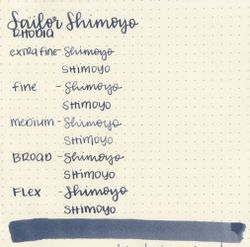 Sailor Shimoyo
RHODIA
extra fine - Shimoyo
SHIMOYO
fine - Shimoyo
SHIMOYO
medium - Shimoyo
SHIMOYO
BROAD - Shimoyo
SHIMOYO
FLEX - Shimoyo
SHIMOYO